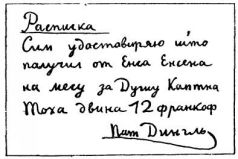 Расписка
Сим удаставиряю што
получил от Енса Енсена
на месу за Душу Каптна
Тоха двина 12 франкоф
Пат Дингль